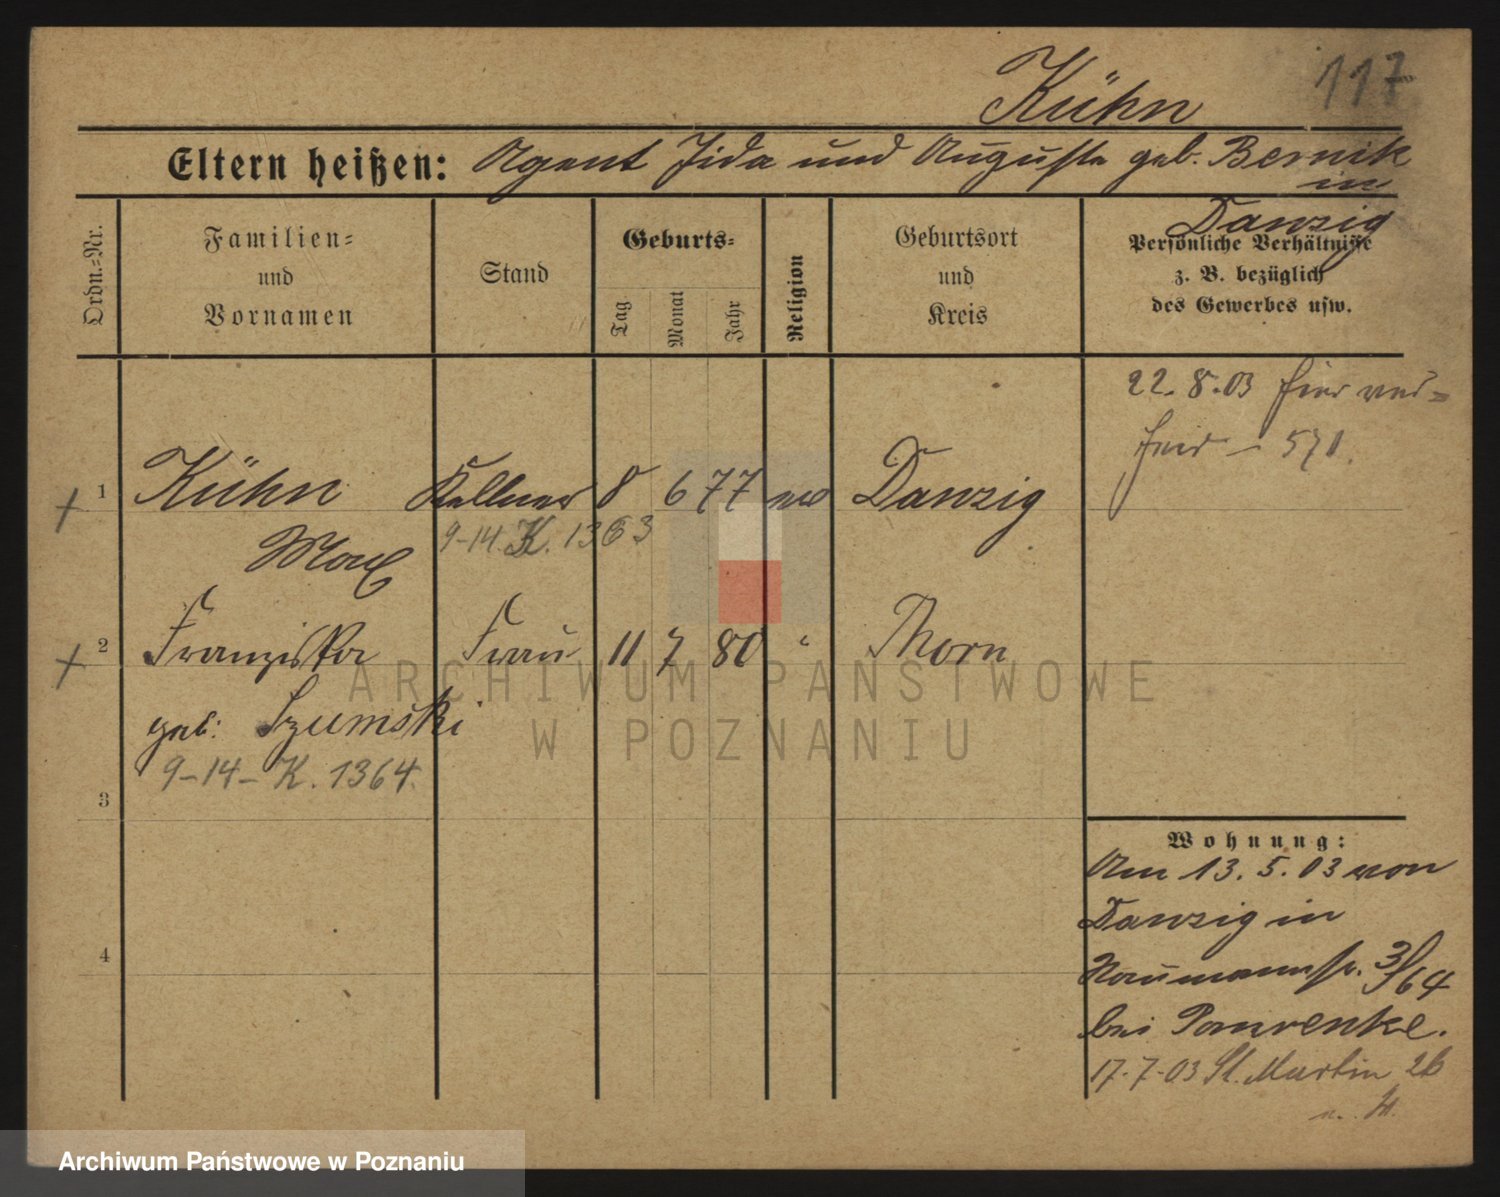 Kühn 117
Eltern heißen: Agent Jida und Auguste geb. Bernik
in
Danzig
Ordn.-Nr.
Familien-
und
Vornamen
Stand
Geburts-
Tag
Monat
Jahr
Religion
Geburtsort
und
Kreis
Persönliche Verhältnisse
z. B. bezüglich
des Gewerbes usw.
22. 8. 03
571.
1 Kühn Kellner 8 6 77 ev Danzig
9-14. K. 1363
Max
2 Franziska Frau 11 7 80 " Thorn
geb: Szumski
9-14- K. 1364.
3
4
Wohnung:
Am 13. 5. 03 von
Danzig in
Naumannstr. 3/64
bei Pawrenke.
17. 7. 03 St. Martin 26
ARCHIWUM PAŃSTWOWE
W POZNANIU
Archiwum Państwowe w Poznaniu